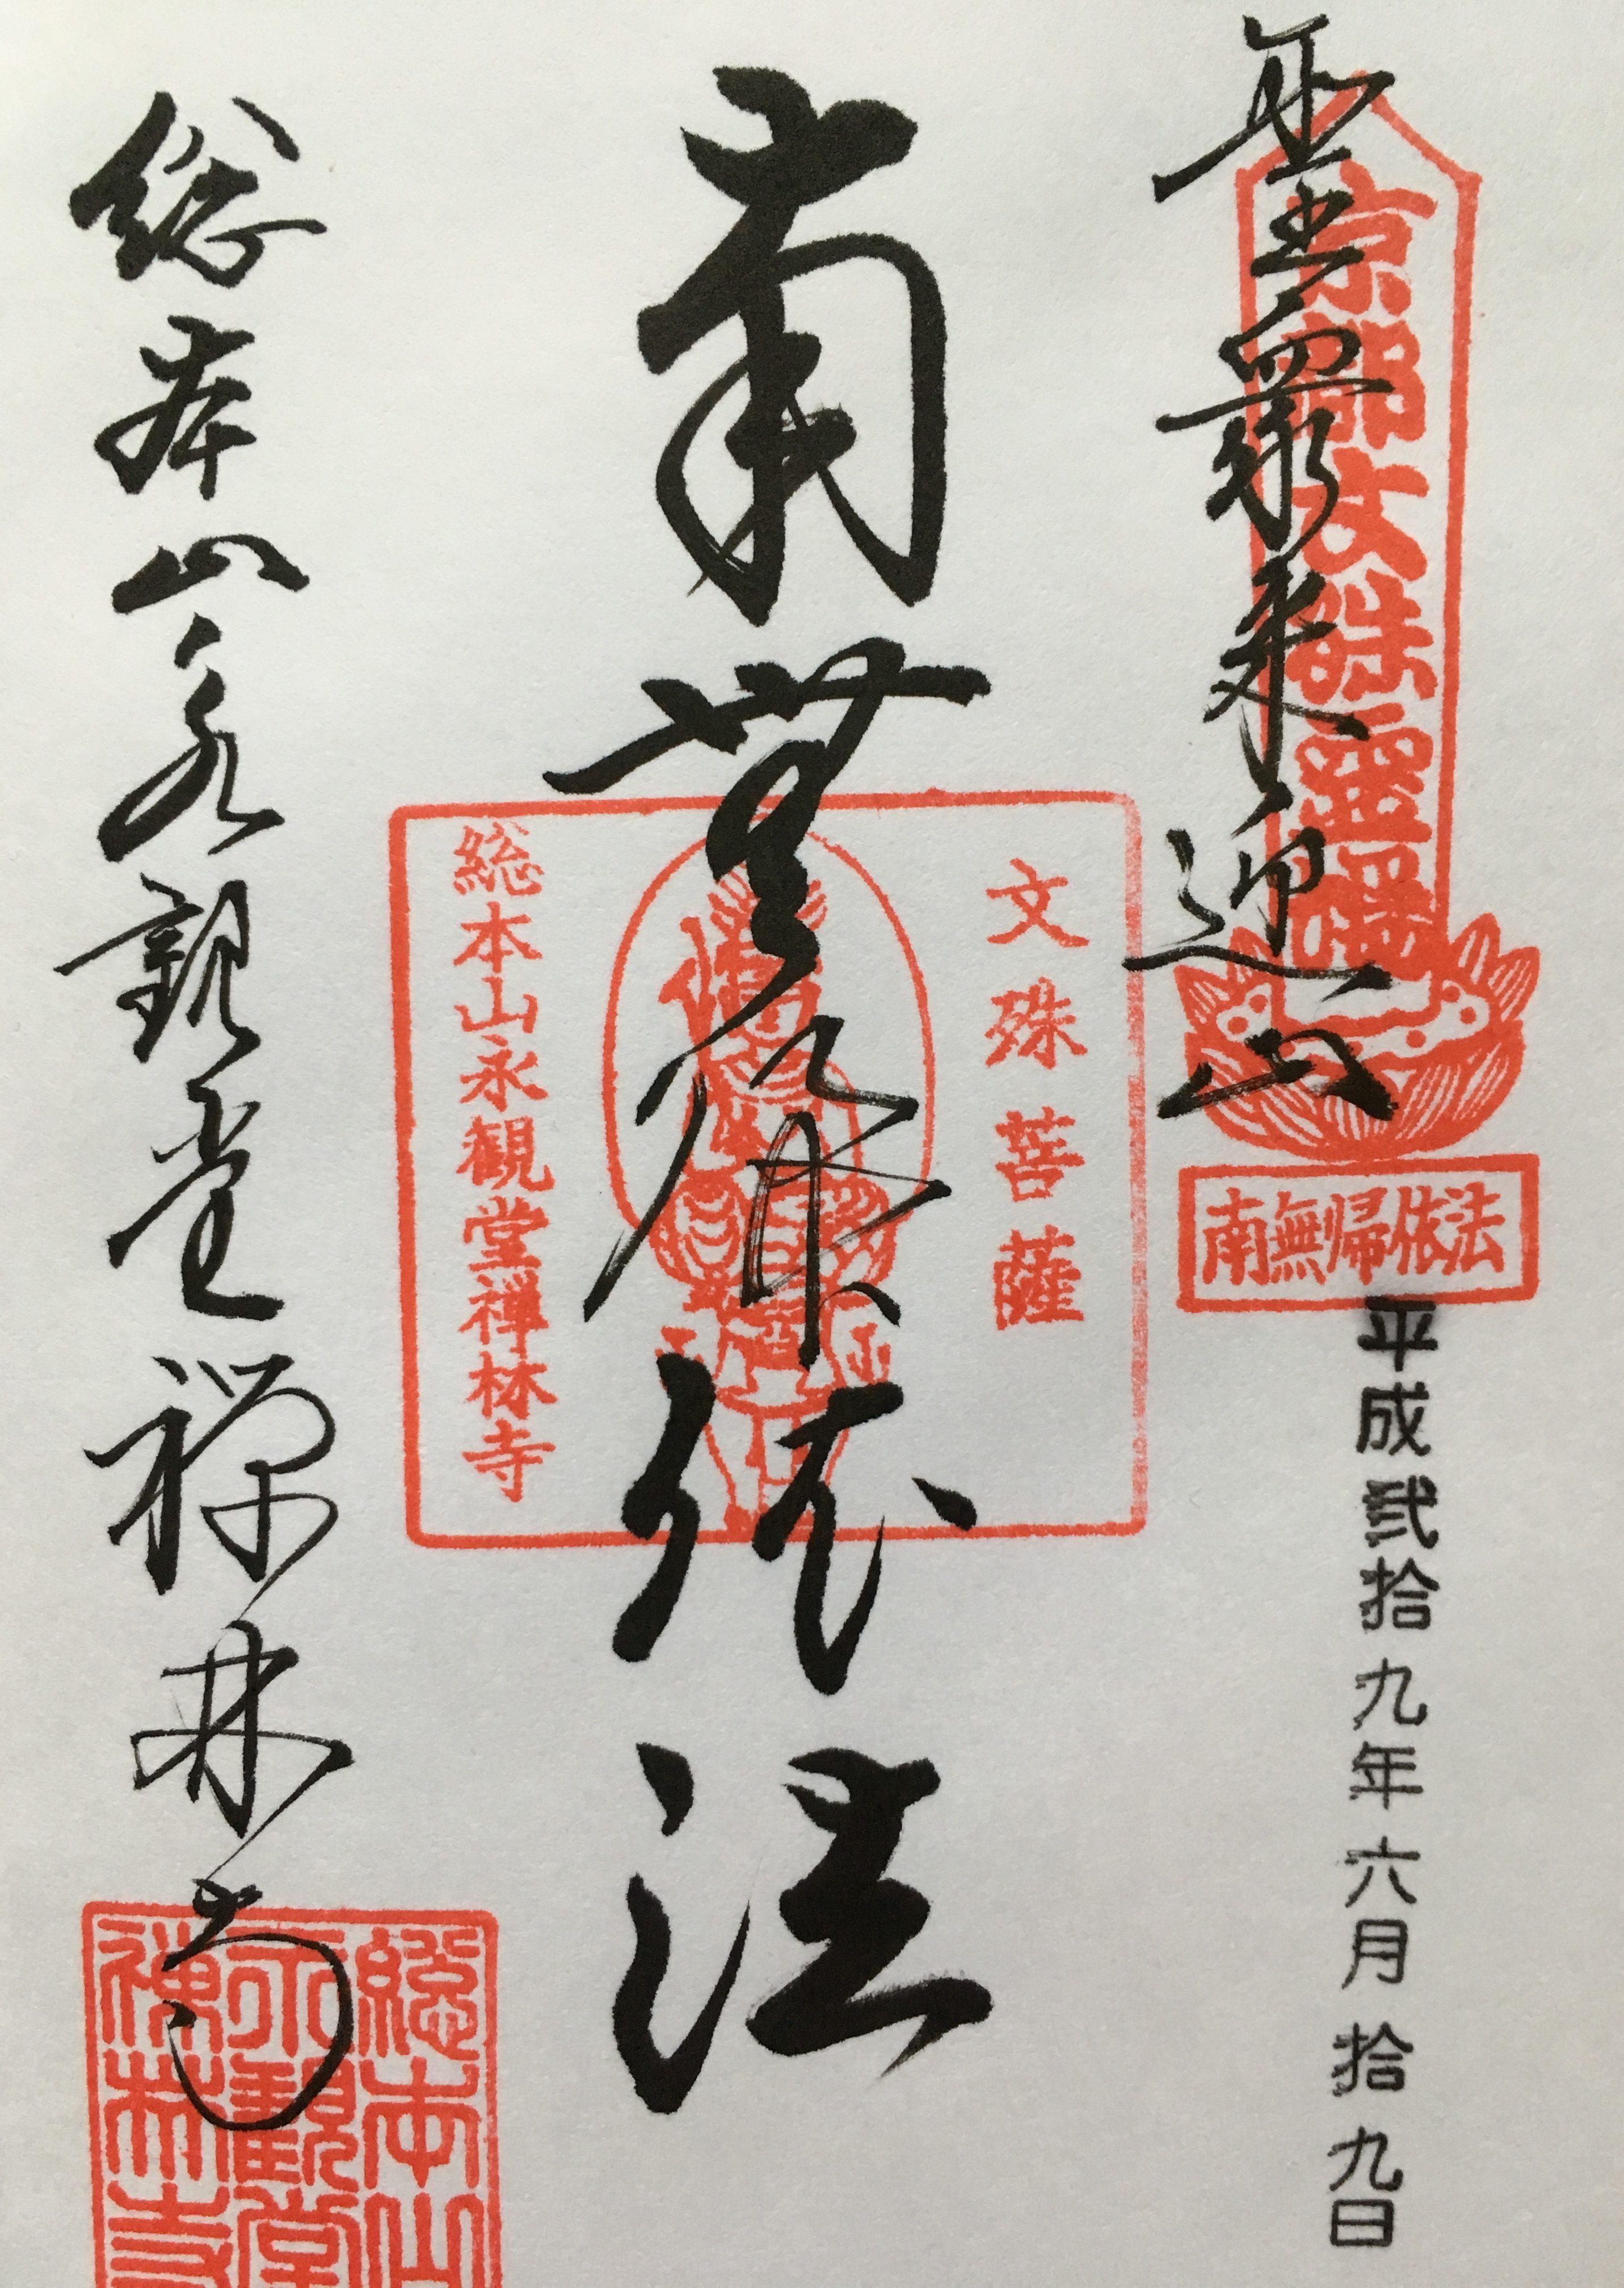 聖衆来迎山
京都文殊霊場
南無帰依法
平成弐拾九年六月拾九日
文殊菩薩
南無帰依法
総本山永観堂禅林寺
総本山永観堂禅林寺
総本山
永観堂
禅林寺